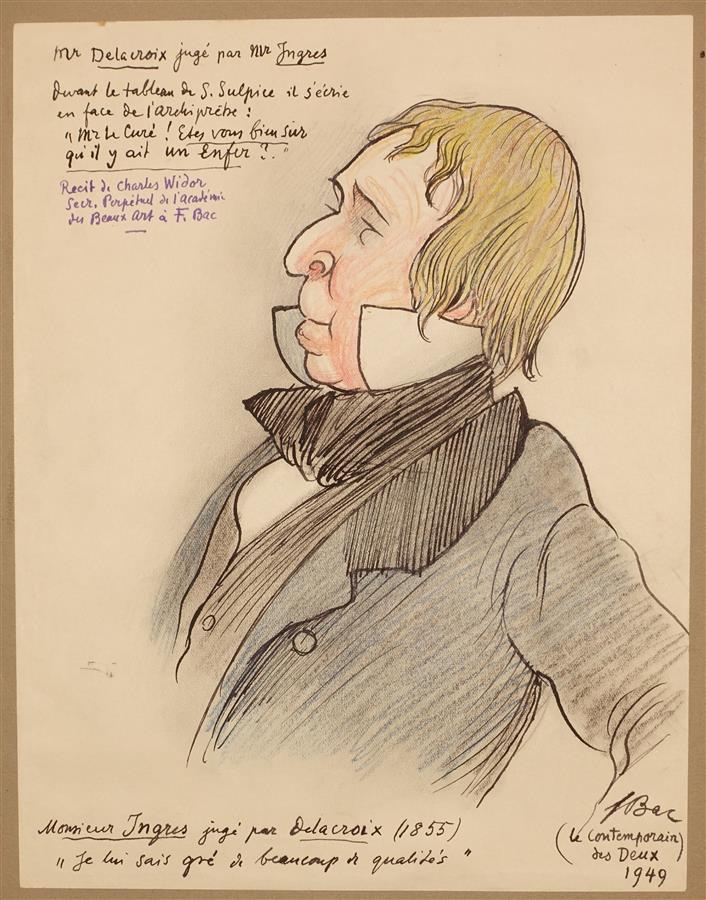 Mr Delacroix jugé par Mr Ingres
Devant le tableau de S. Sulpice il s'écrie
en face de l'archiprêtre :
"Mr le Curé ! Etes vous bien sûr
qu'il y ait un Enfer ?."
Recit de Charles Widor
Secr. Perpétuel de l'Académie
des Beaux Art à F. Bac
Monsieur Ingres jugé par Delacroix (1855)
"Je lui sais gré de beaucoup de qualités"
F Bac
(le Contemporain)
des Deux
1949